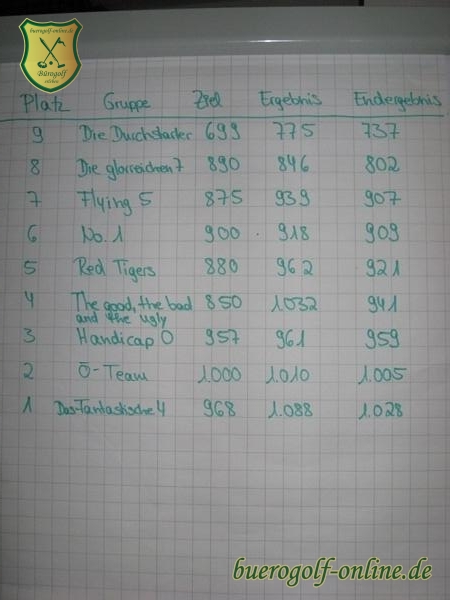 buerogolf-online.de
Bürogolf
erleben
Platz Gruppe Ziel Ergebnis Endergebnis
9 Die Durchstarter 699 775 737
8 Die glorreichen 7 890 846 802
7 Flying 5 875 939 907
6 No. 1 900 918 909
5 Red Tigers 880 962 921
4 The good, the bad 850 1032 941
and the ugly
3 Handicap 0 957 961 959
2 Ö-Team 1.000 1.010 1.005
1 Das Fantastische 4 968 1.088 1.028
buerogolf-online.de